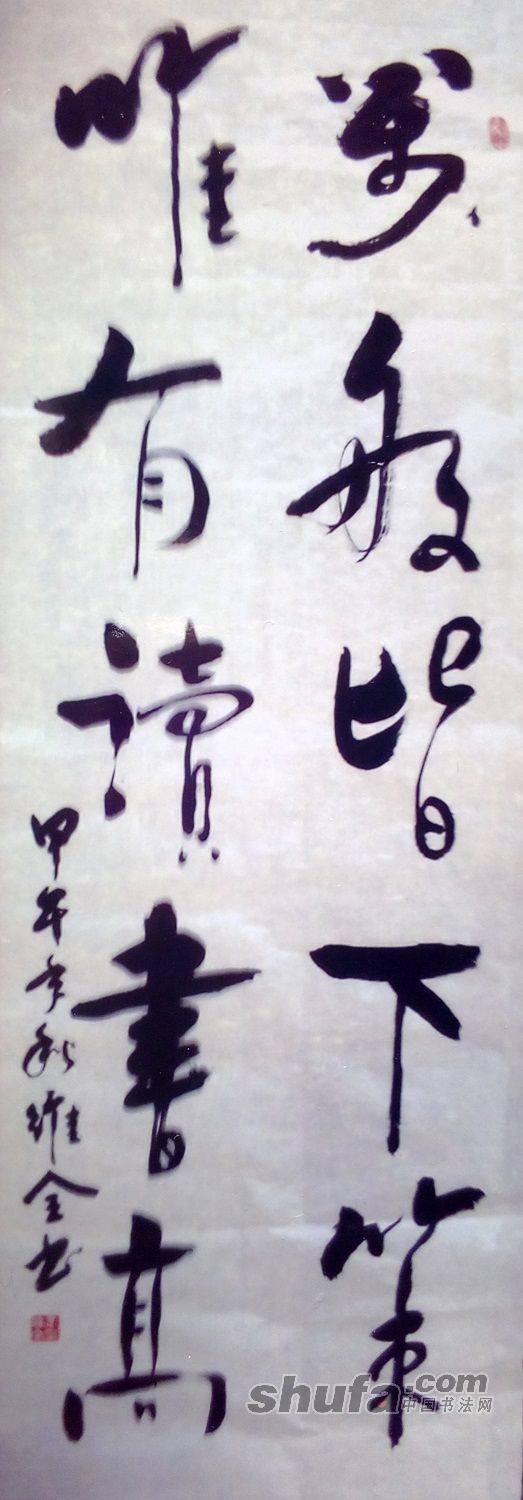 萬般皆下策
唯有讀書高
甲午年秋維全书
shufa.com
中国书法网